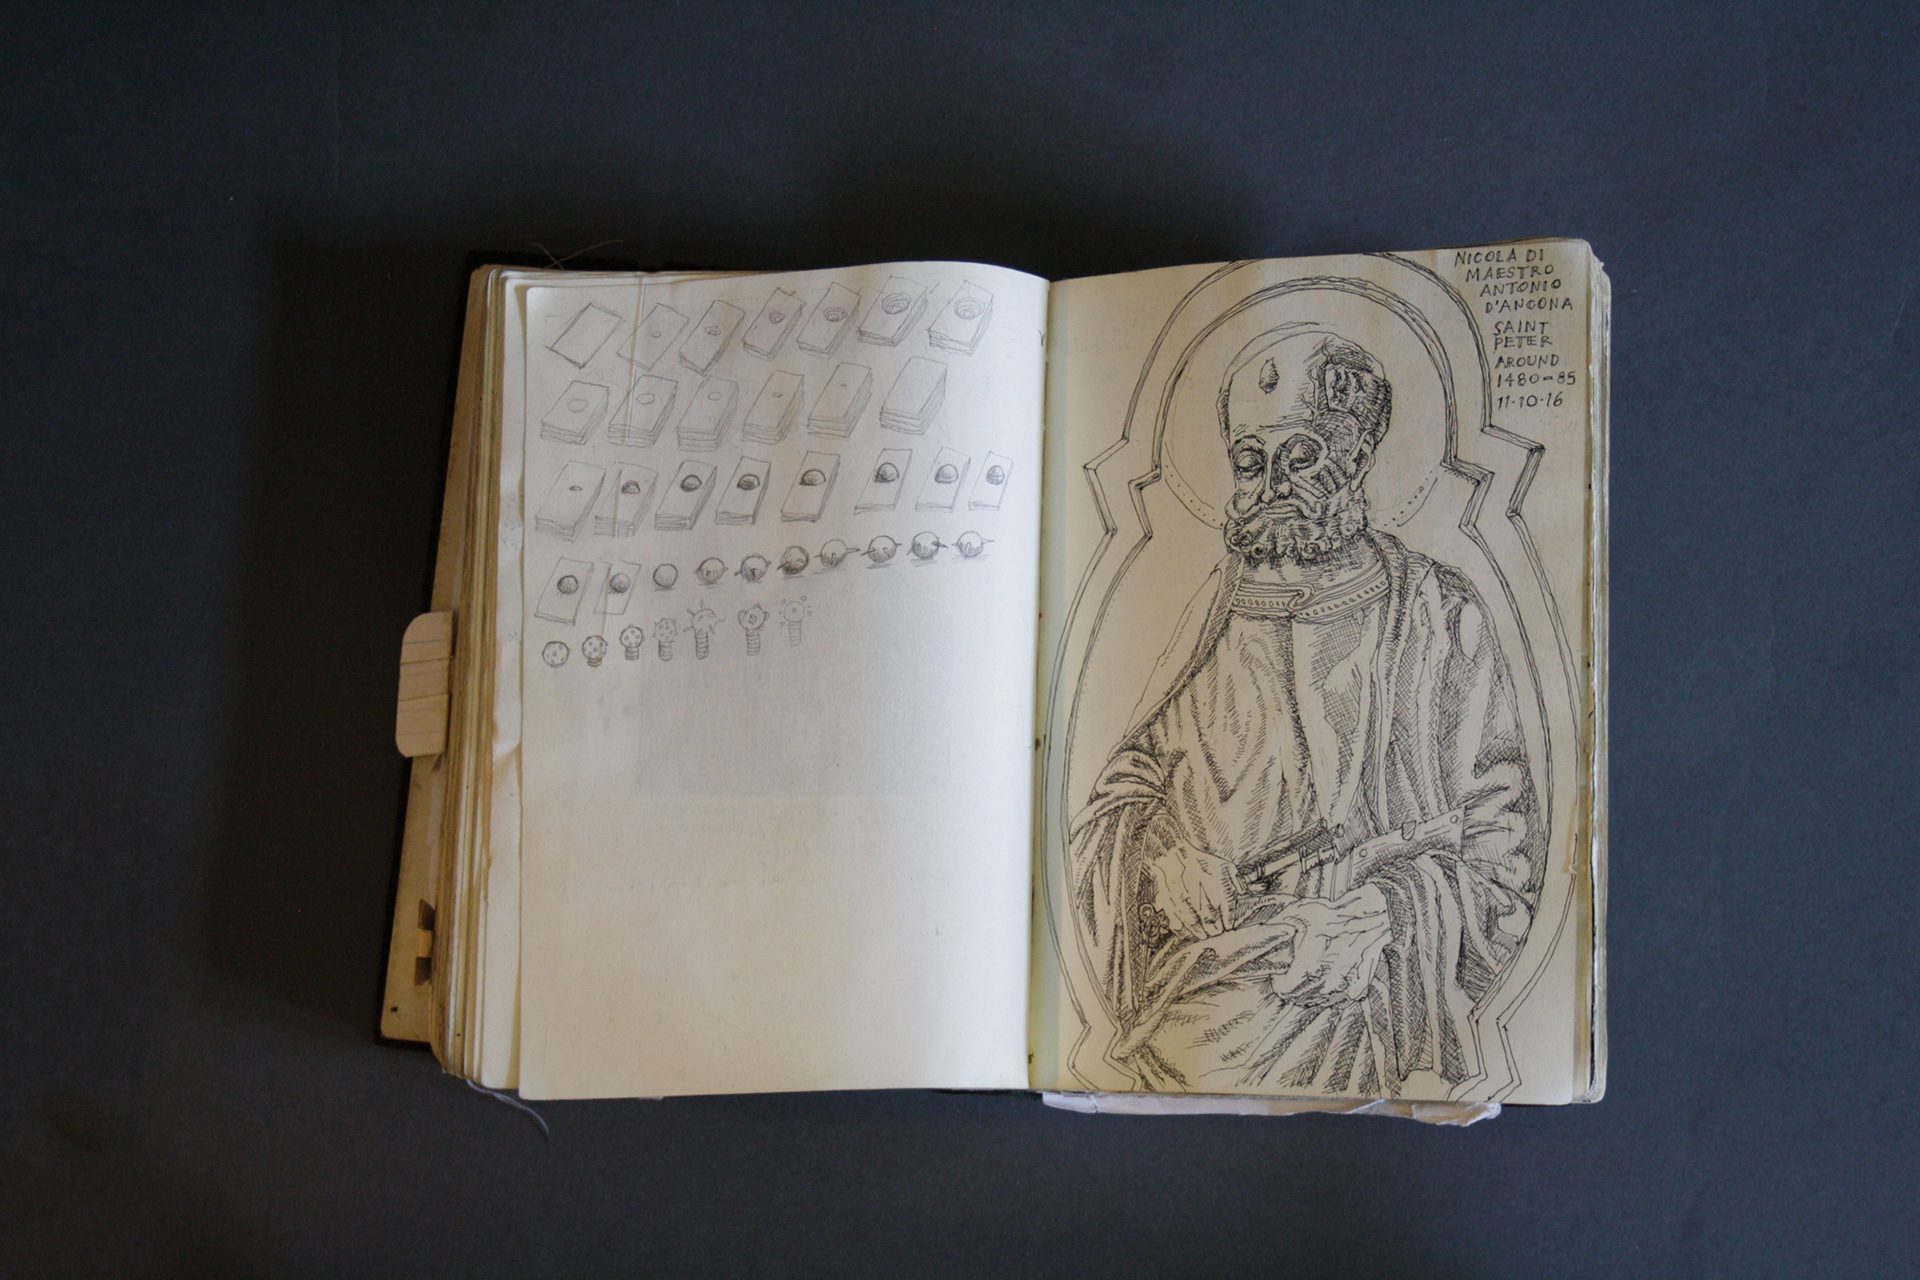 NICOLA DI
MAESTRO
ANTONIO
D'ANCONA
SAINT
PETER
AROUND
1480-85
11·10·16